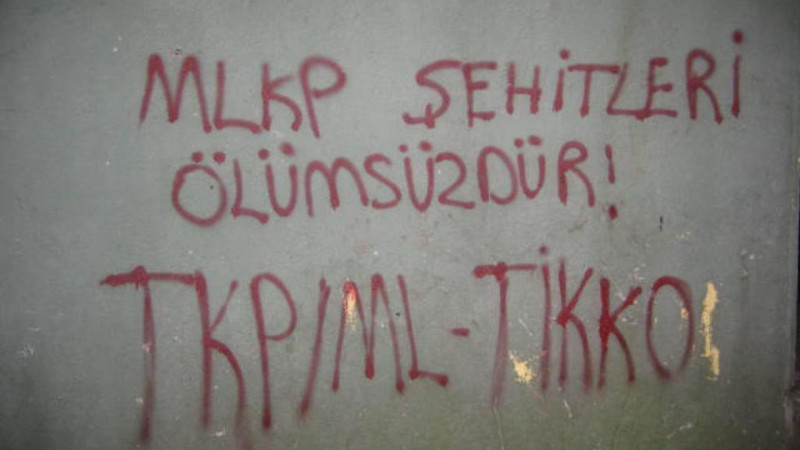 MLKP ŞEHİTLERİ
ÖLÜMSÜZDÜR!
TKP/ML-TİKKO